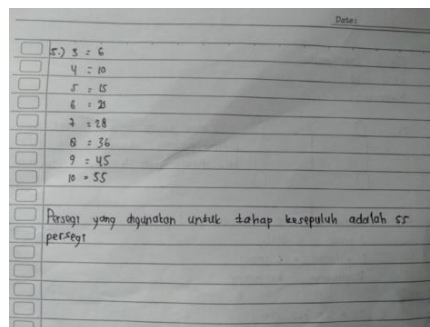 Date:
5.) 3 = 6
4 = 10
5 = 15
6 = 21
7 = 28
8 = 36
9 = 45
10 = 55
Persegi yang digunakan untuk tahap kesepuluh adalah 55
persegi